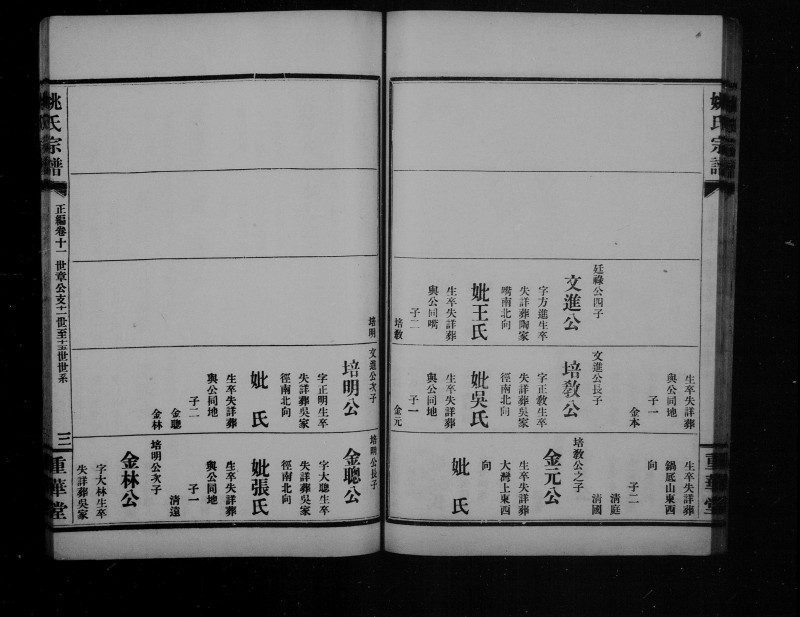 姚氏宗譜
重華堂
廷祿公四子
文進公
字方進生卒
失詳葬陶家
嘴南北向
妣王氏
生卒失詳葬
與公同嘴
子二
培敎
培明
生卒失詳葬
與公同地
子一
金本
文進公長子
培敎公
字正敎生卒
失詳葬吳家
徑南北向
妣吳氏
生卒失詳葬
與公同地
子一
金元
文進公次子
培明公
字正明生卒
失詳葬吳家
徑南北向
妣 氏
生卒失詳葬
與公同地
子二
金聰
金林
生卒失詳葬
鍋底山東西
向
子二
清庭
清國
培敎公之子
金元公
生卒失詳葬
大灣上東西
向
妣 氏
培明公長子
金聰公
字大聰生卒
失詳葬吳家
徑南北向
妣張氏
生卒失詳葬
與公同地
子一
清遠
培明公次子
金林公
字大林生卒
失詳葬吳家
姚氏宗譜
正編卷十一 世章公支十一世至十五世世系
三
重華堂